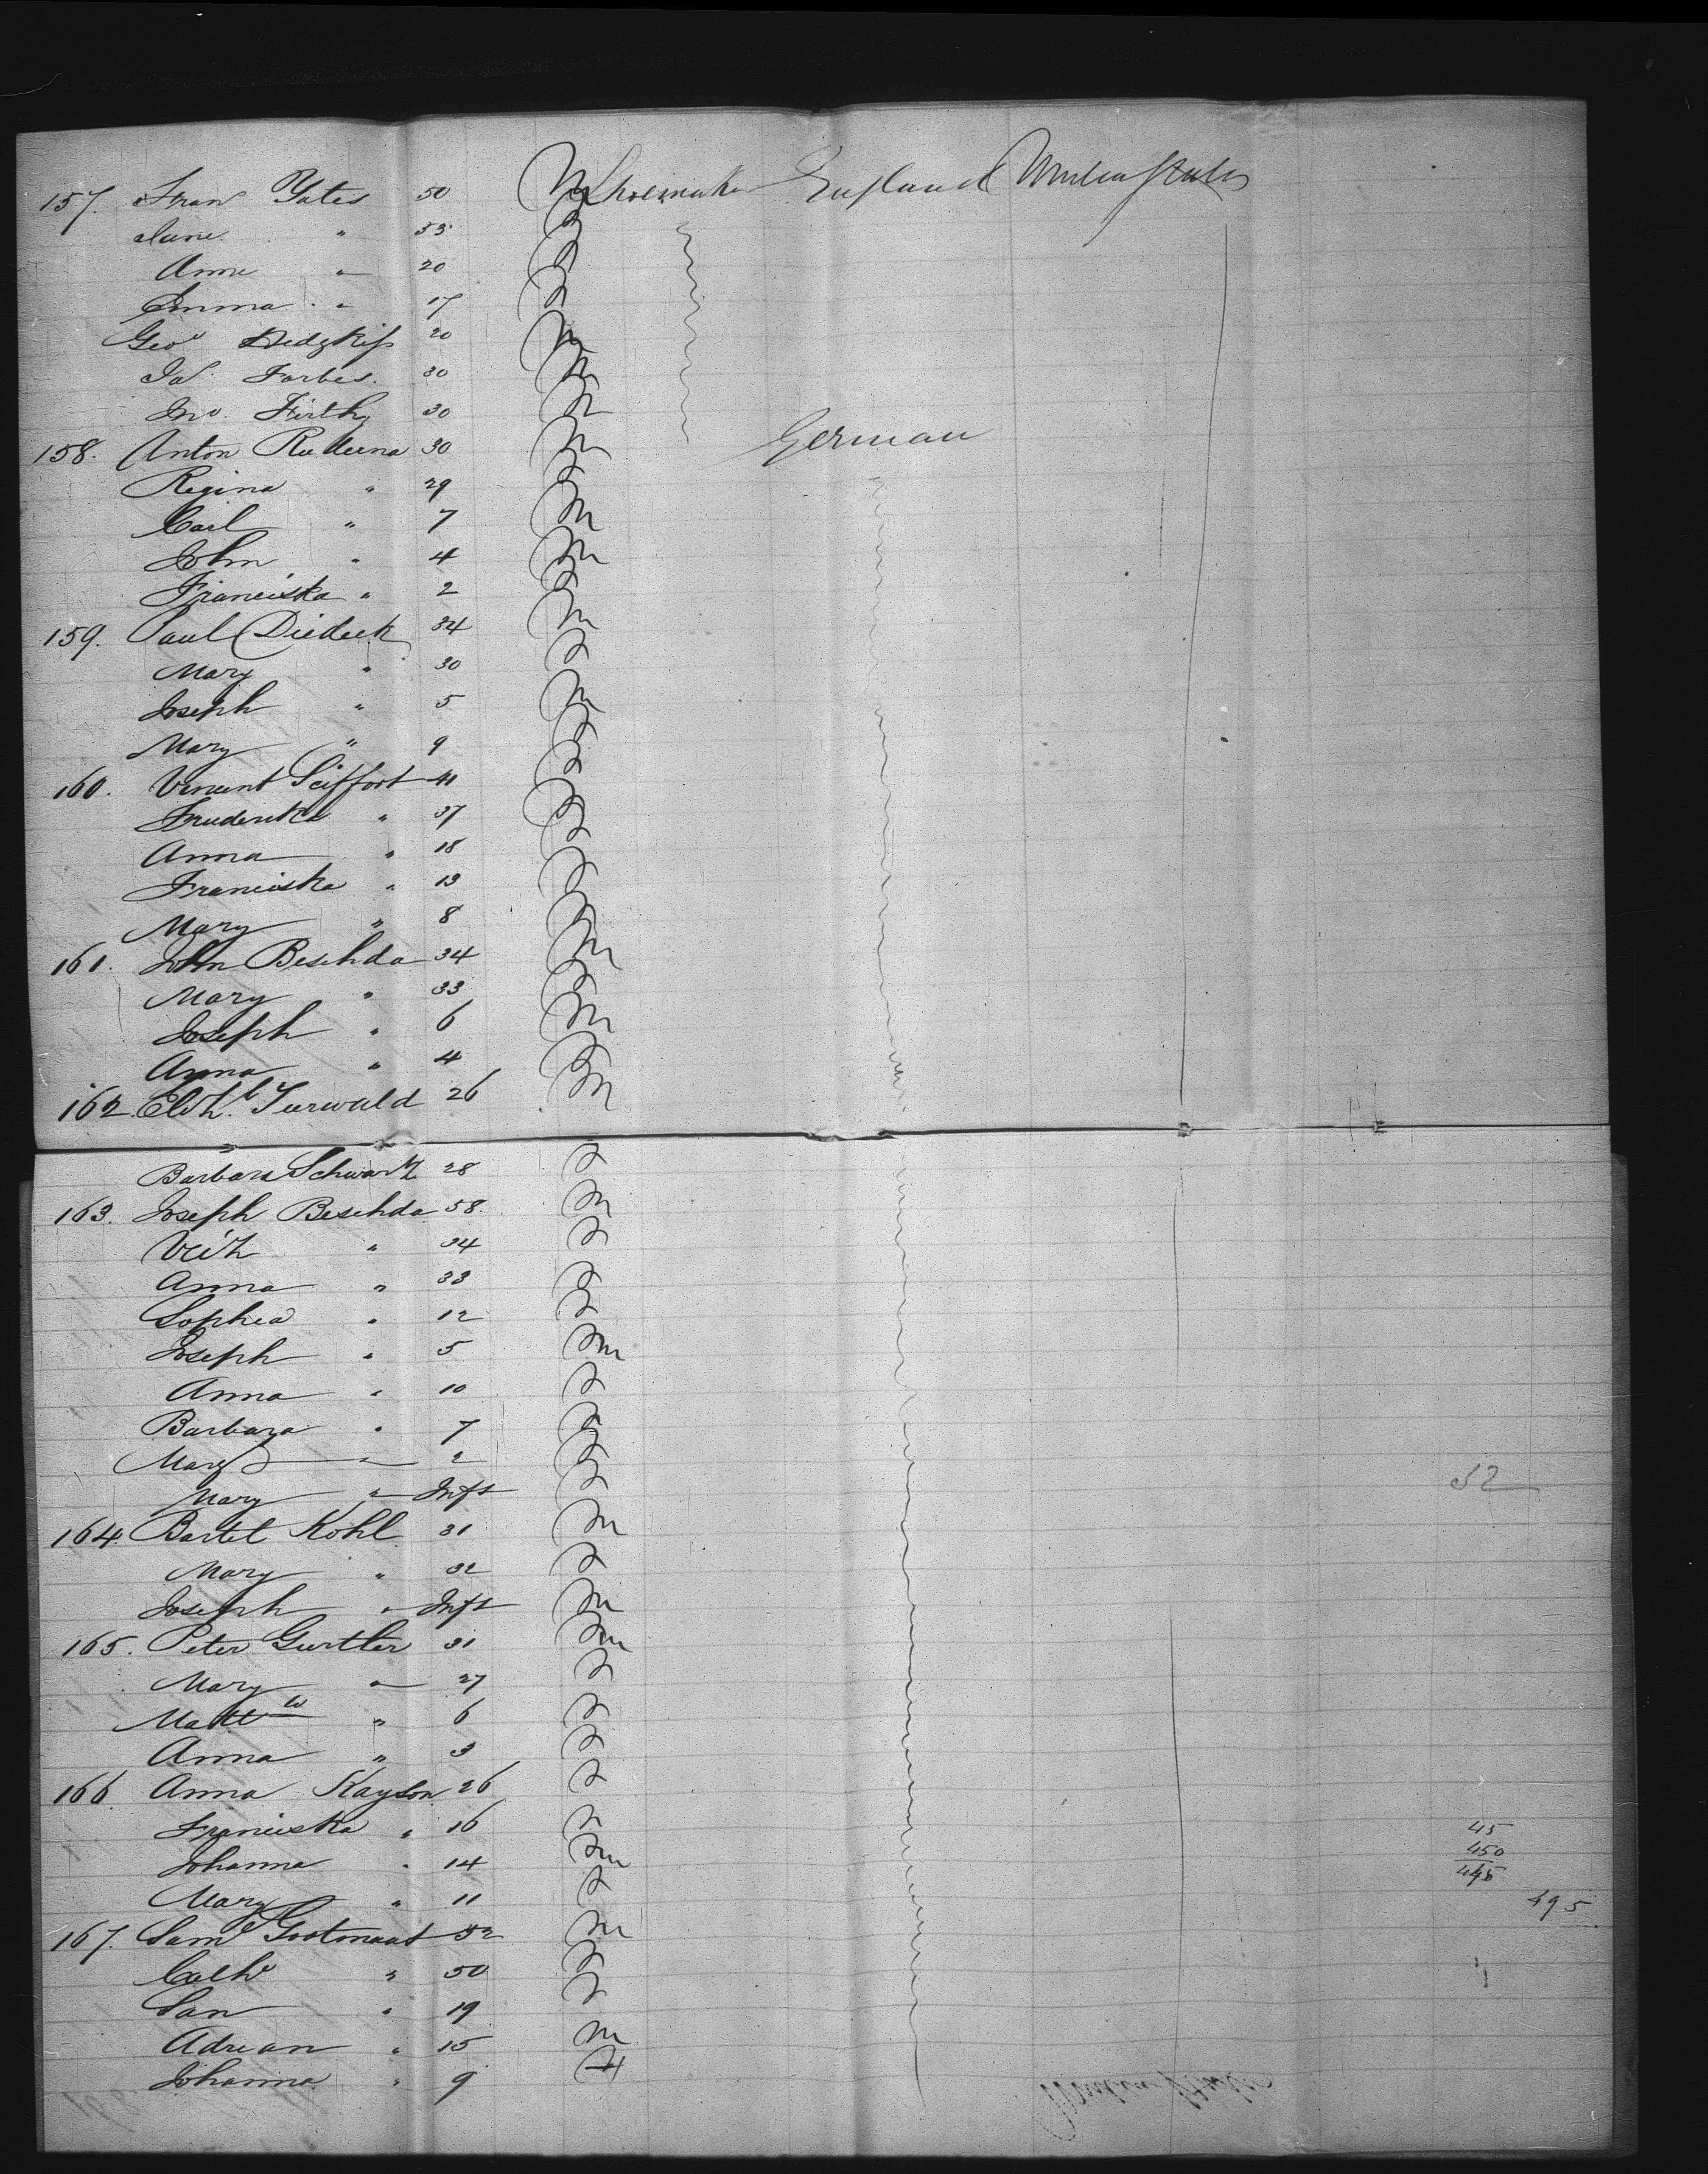 157. Fran Yates 50 M Shoemaker England United States
Jane " 53 F
Anne " 20 F
Emma " 17 F
Geo Hedgkiss 20 M
Jas. Forbes. 30 M
Jno. Firth 30 M
158. Anton Ruderna 30 M German
Regina " 29 F
Carl " 7 M
John " 4 M
Franciska " 2 F
159. Paul Diedeck 34 M
Mary " 30 F
Joseph " 5 M
Mary " 9 F
160. Vincent Seiffort 41
Fruderika " 37 F
Anna " 18 F
Franciska " 13 F
Mary " 8 F
161. John Beschda 34 M
Mary " 33 F
Joseph " 6 M
Anna " 4 F
162. Elizh. 26 M
Barbara Schwartz 28 F
163. Joseph Beschda 58. M
Veih " 34 F
Anna " 33 F
Sophia " 12 F
Joseph " 5 M
Anna " 10 F
Barbara " 7 F
Mary " 2 F
52
Mary " Inft F
164. Bartel Kohl 31 M
Mary " 32 F
Joseph " Inft M
165. Peter Gurtler 31 M
Mary " 27 F
Mattw " 6 F
Anna " 3 F
166. Anna Kayson 26 F
Franciska " 16 F
45
Johanna " 14 M
450
445
Mary " 11 F
495
167. Saml Gootmaat 52 M
Cathe " 50 F
San " 19 F
Adrean " 15 M
Johanna " 9 F